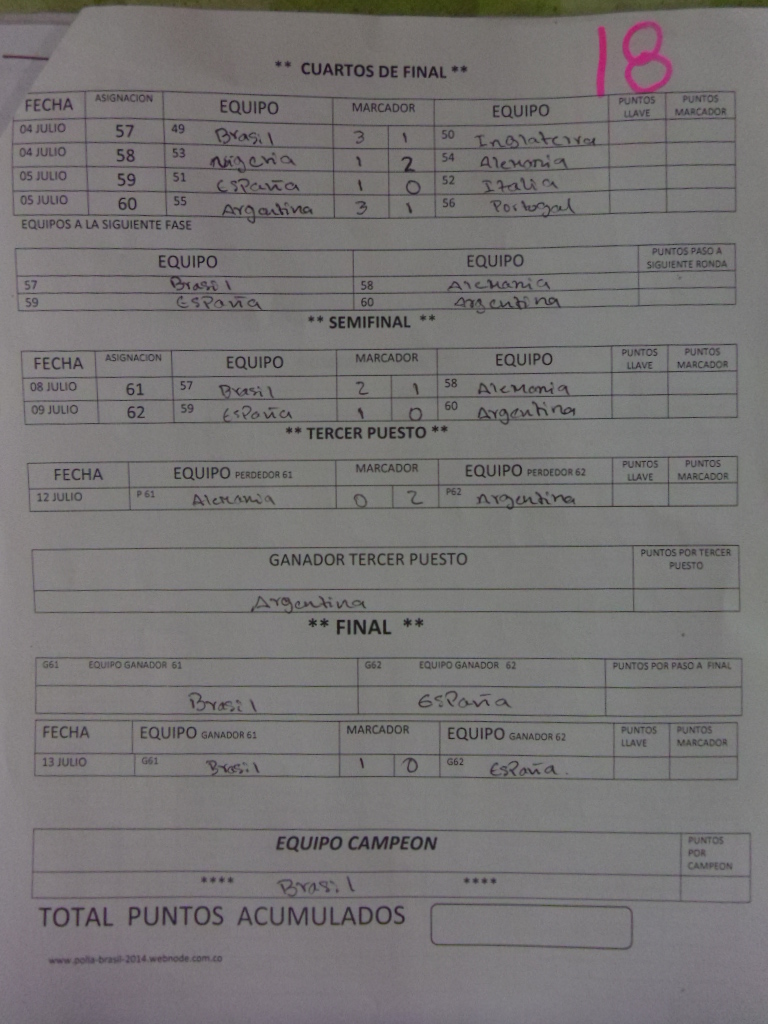 18
** CUARTOS DE FINAL **
FECHA ASIGNACION EQUIPO MARCADOR EQUIPO PUNTOS LLAVE PUNTOS MARCADOR
04 JULIO 57 49 Brasil 3 1 50 Inglaterra
04 JULIO 58 53 Nigeria 1 2 54 Alemania
05 JULIO 59 51 España 1 0 52 Italia
05 JULIO 60 55 Argentina 3 1 56 Portogal
EQUIPOS A LA SIGUIENTE FASE
EQUIPO EQUIPO PUNTOS PASO A SIGUIENTE RONDA
57 Brasil 58 Alemania
59 España 60 Argentina
** SEMIFINAL **
FECHA ASIGNACION EQUIPO MARCADOR EQUIPO PUNTOS LLAVE PUNTOS MARCADOR
08 JULIO 61 57 Brasil 2 1 58 Alemania
09 JULIO 62 59 España 1 0 60 Argentina
** TERCER PUESTO **
FECHA EQUIPO PERDEDOR 61 MARCADOR EQUIPO PERDEDOR 62 PUNTOS LLAVE PUNTOS MARCADOR
12 JULIO P 61 Alemania 0 2 P62 Argentina
GANADOR TERCER PUESTO PUNTOS POR TERCER PUESTO
Argentina
** FINAL **
G61 EQUIPO GANADOR 61 G62 EQUIPO GANADOR 62 PUNTOS POR PASO A FINAL
Brasil España
FECHA EQUIPO GANADOR 61 MARCADOR EQUIPO GANADOR 62 PUNTOS LLAVE PUNTOS MARCADOR
13 JULIO G61 Brasil 1 0 G62 España.
EQUIPO CAMPEON PUNTOS POR CAMPEON
**** Brasil ****
TOTAL PUNTOS ACUMULADOS
www.polla-brasil-2014.webnode.com.co